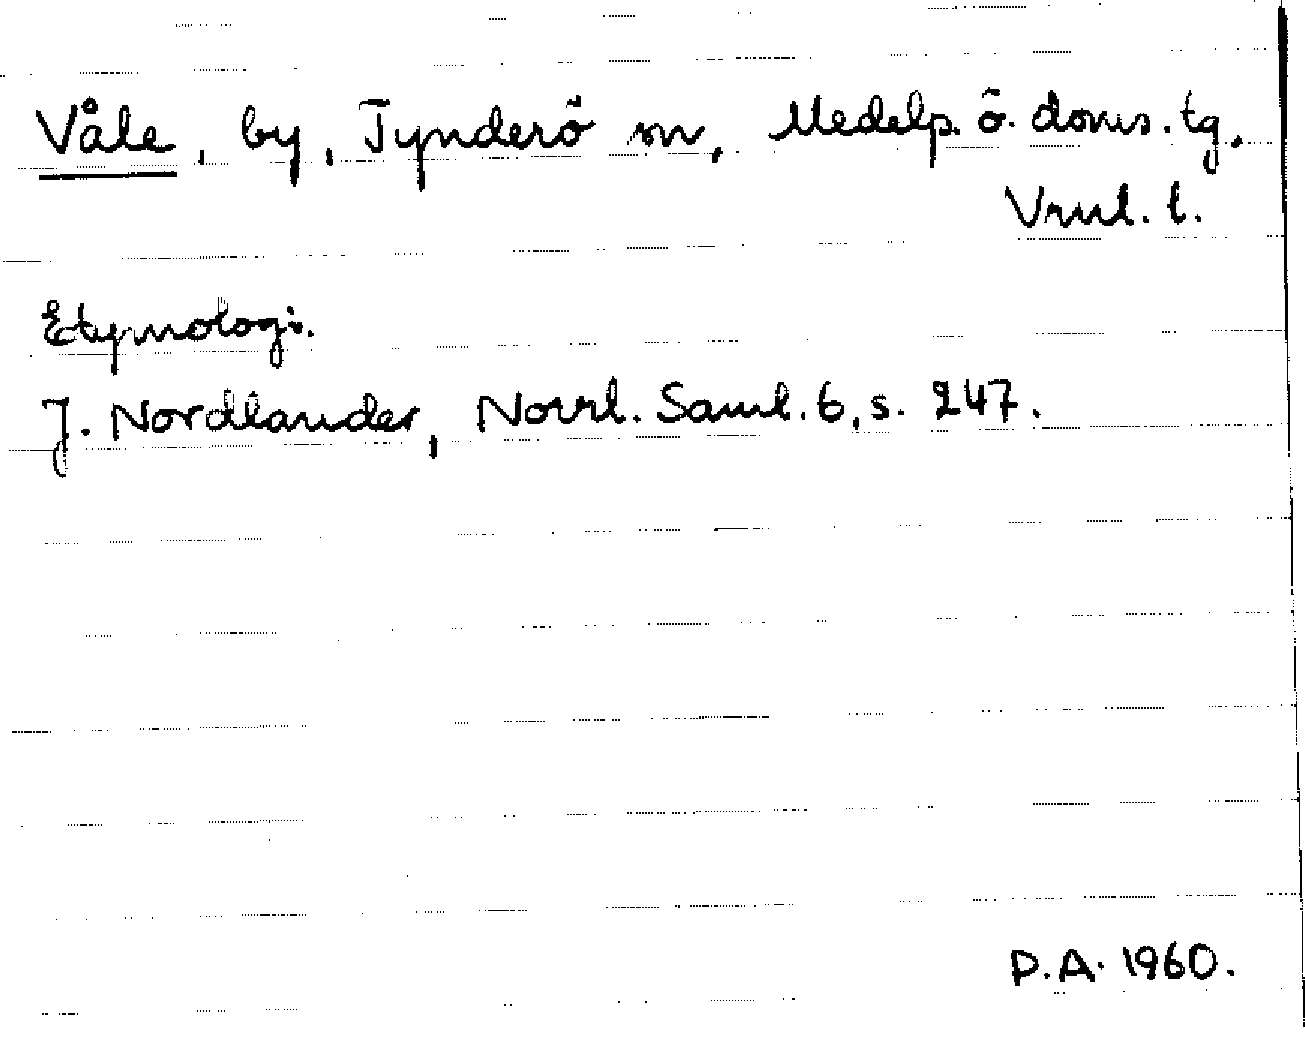 Våle, by, Tynderö sn, Medelp. ö. doms. tg.
Vrnl. l.
Etymologi.
J. Nordlander, Norrl. Saml. 6, s. 247.
P.A. 1960.